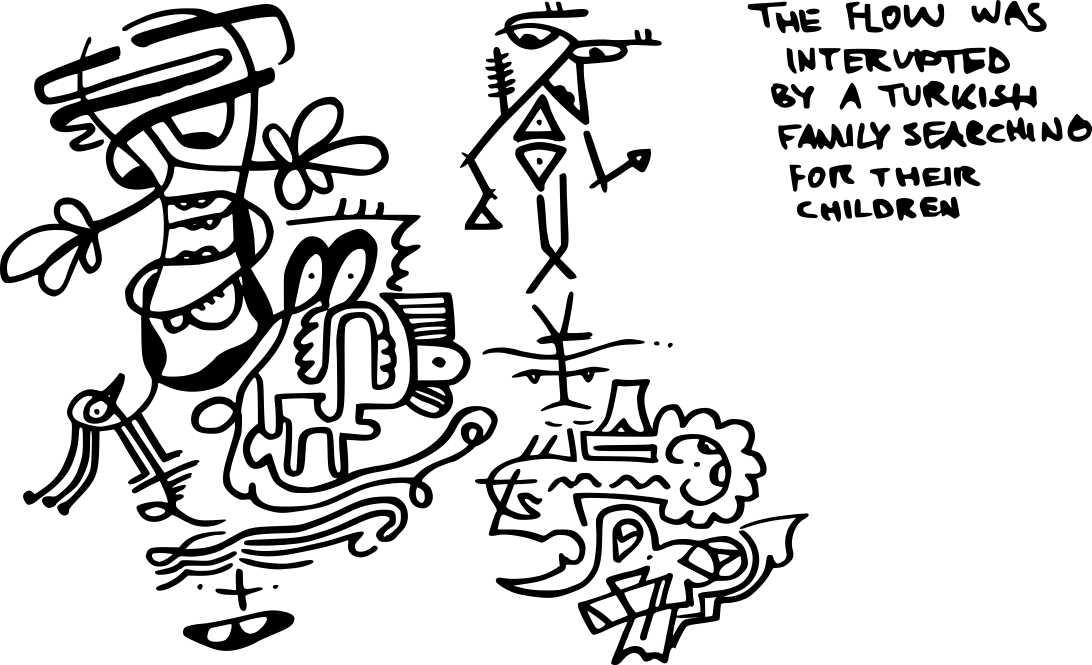 THE FLOW WAS
INTERUPTED
BY A TURKISH
FAMILY SEARCHING
FOR THEIR
CHILDREN